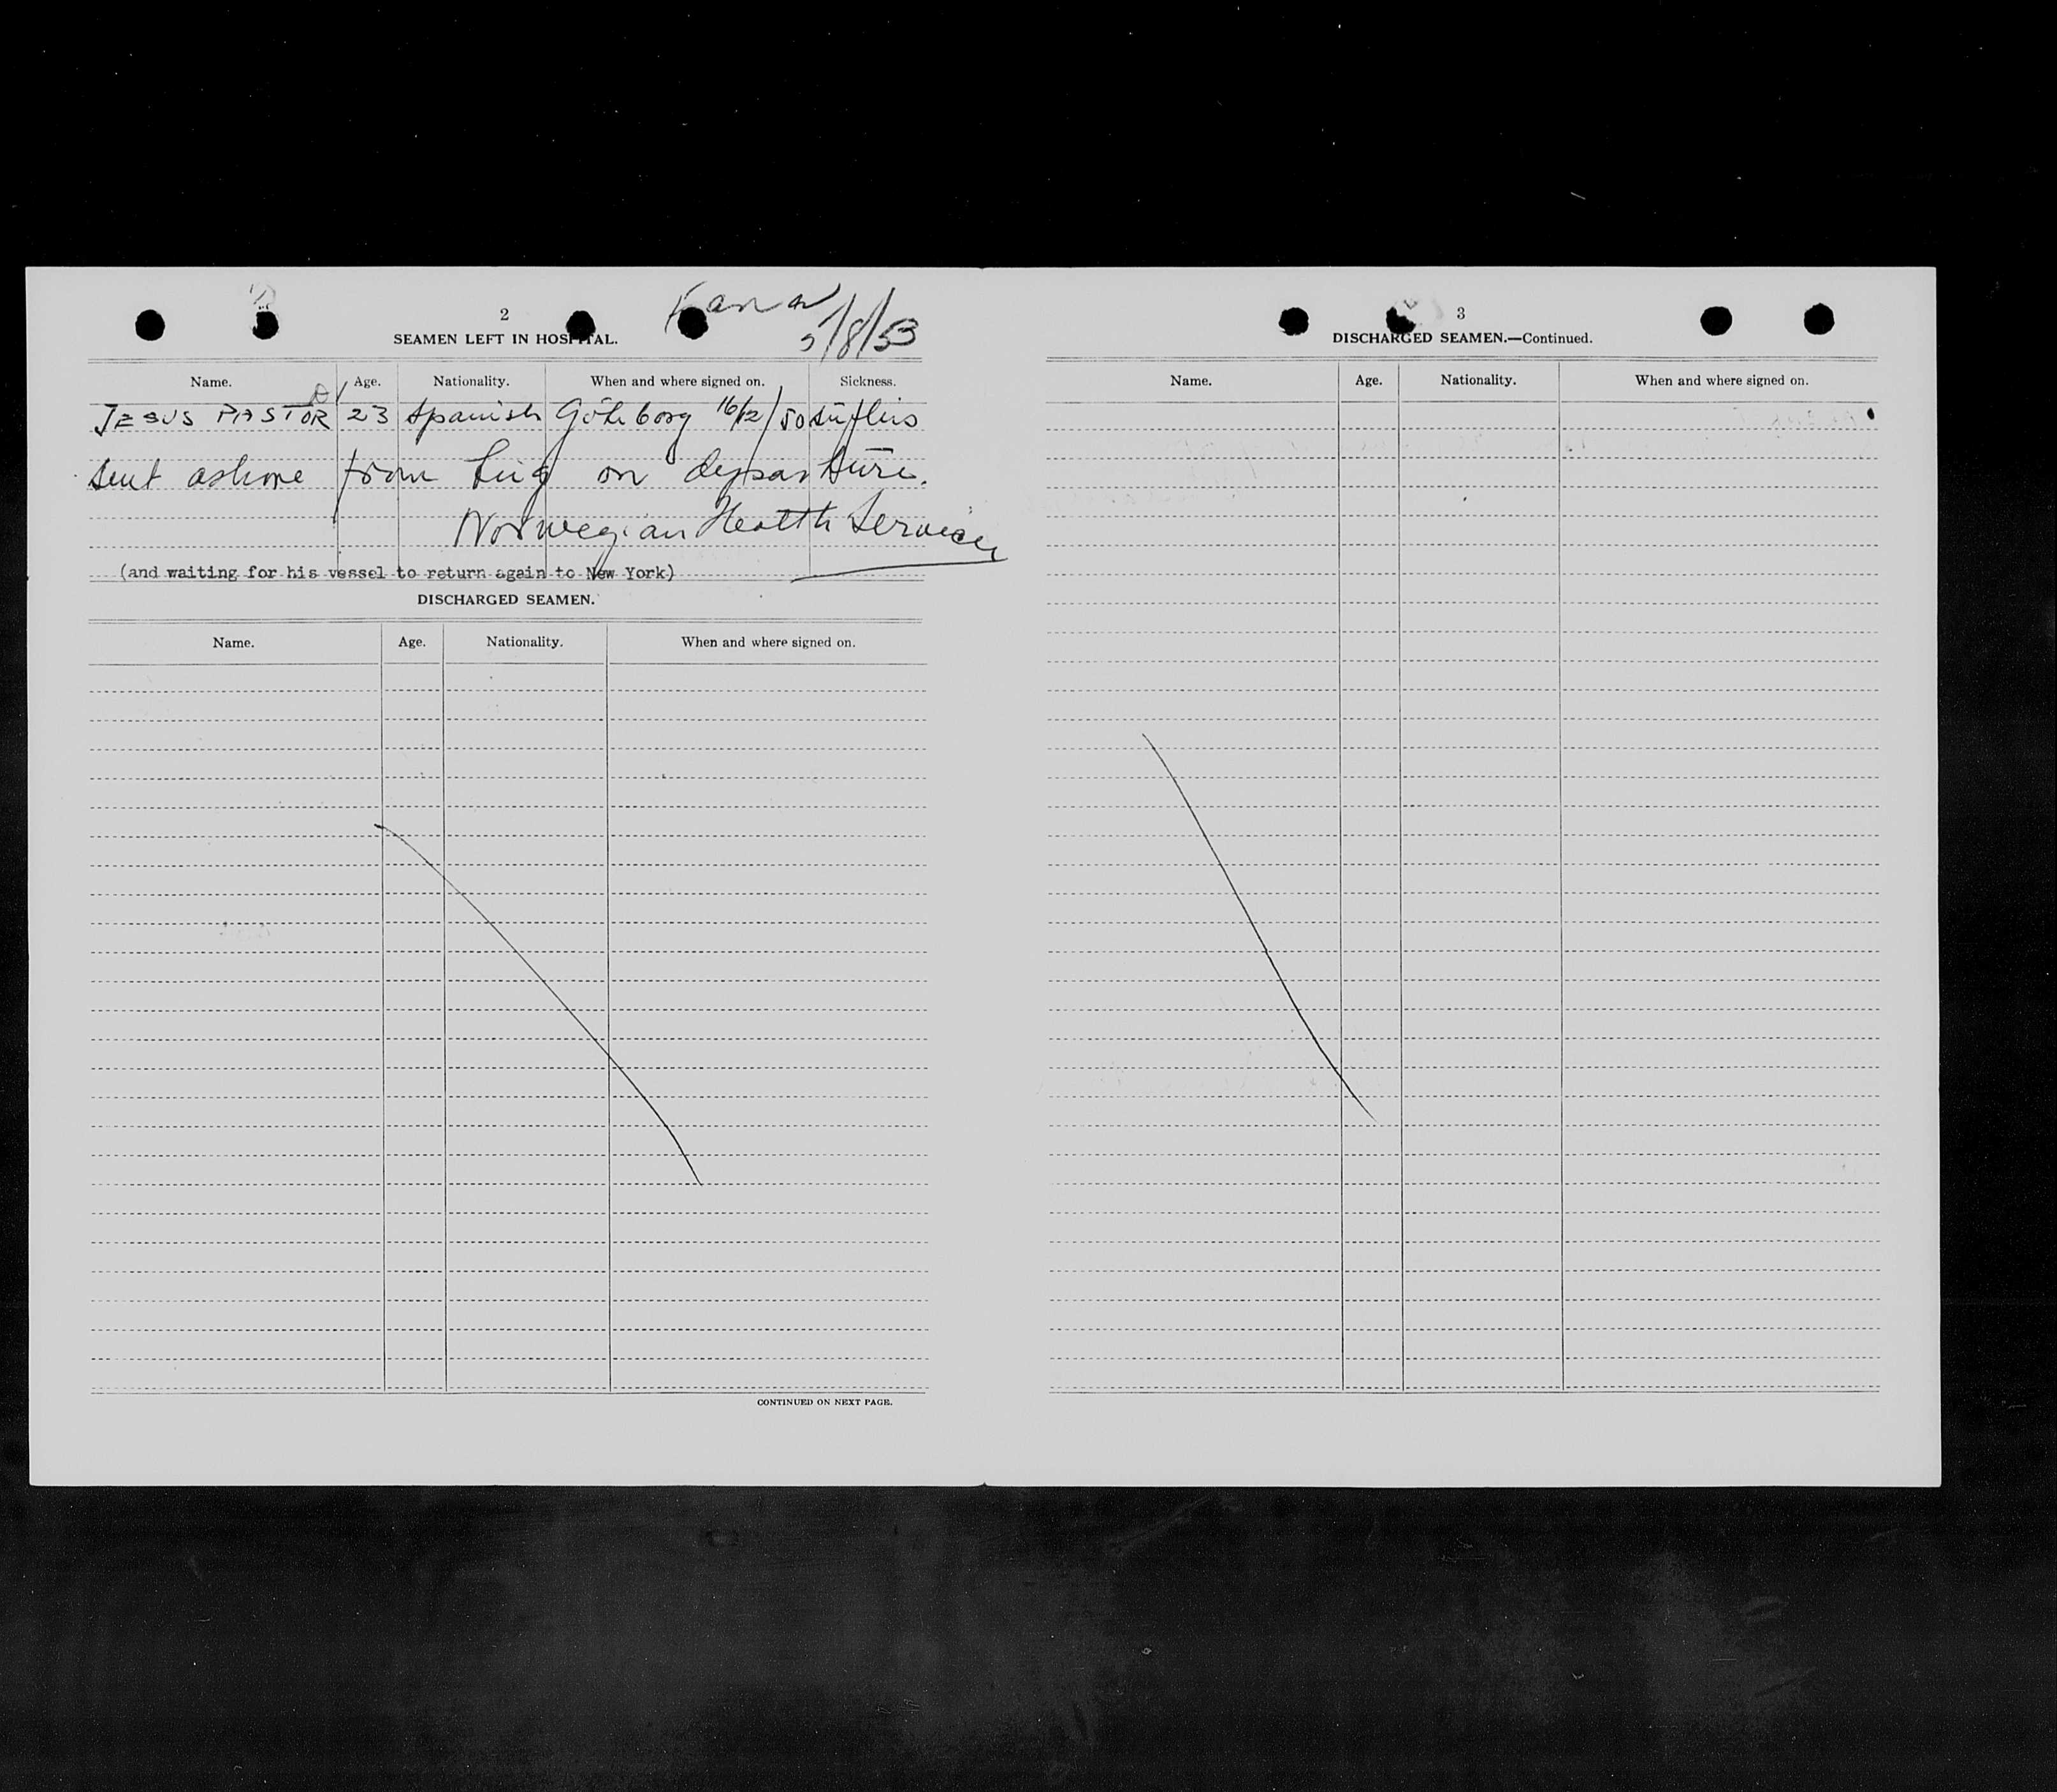 2
5/8/53
SEAMEN LEFT IN HOSPITAL.
Name. Age. Nationality. When and where signed on. Sickness.
JESUS PASTOR 23 Spanish Göteborg 16/12/50 süfflis
Sent ashore from tug on departure.
Norwegian Health Service
(and waiting for his vessel to return again to New York)
DISCHARGED SEAMEN.
Name. Age. Nationality. When and where signed on.
CONTINUED ON NEXT PAGE.
3
DISCHARGED SEAMEN.—Continued.
Name. Age. Nationality. When and where signed on.